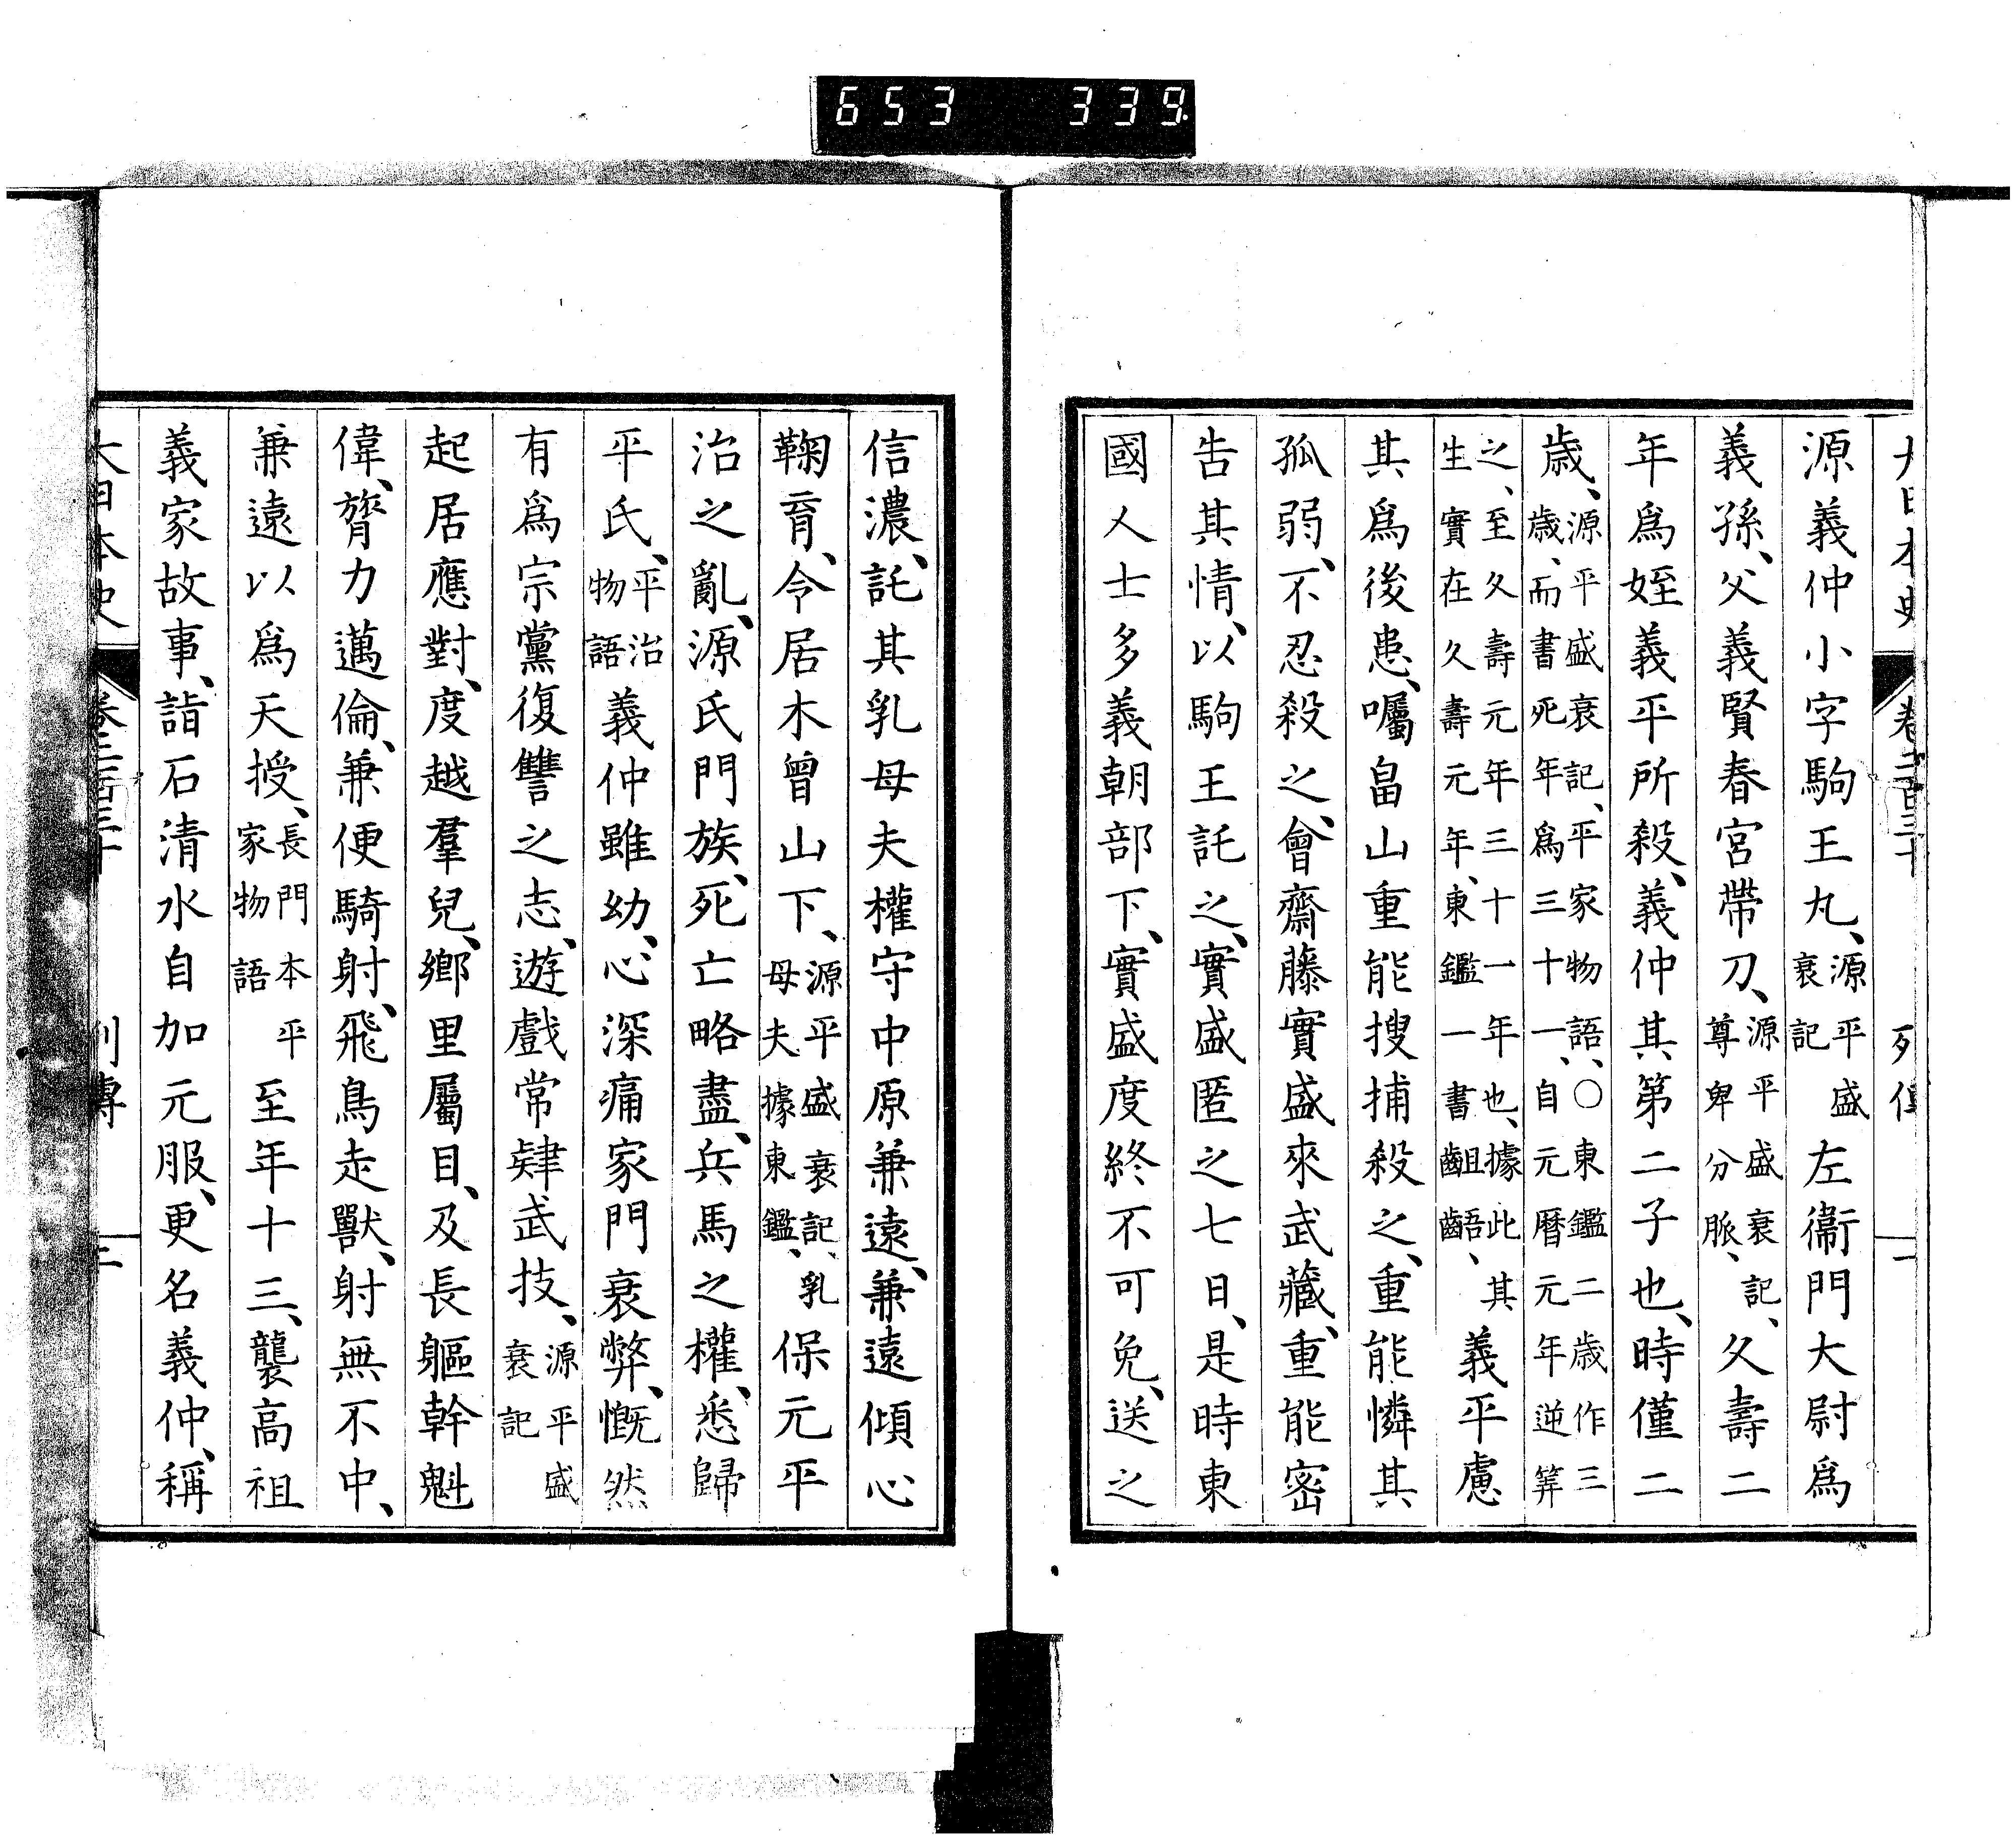 653 339
大日本史 卷二百三十 列傳 一
源義仲小字駒王丸、源平盛衰記左衞門大尉爲
義孫、父義賢春宮帶刀、源平盛衰記、尊卑分脈、久壽二
年爲姪義平所殺、義仲其第二子也、時僅二
歳、源平盛衰記、平家物語、○東鑑二歳作三歳、而書死年爲三十一、自元暦元年逆筭
之、至久壽元年三十一年也、據此其生實在久壽元年、東鑑一書齟齬、義平慮
其爲後患、囑畠山重能搜捕殺之、重能憐其
孤弱、不忍殺之、會齋藤實盛來武藏、重能密
告其情、以駒王託之、實盛匿之七日、是時東
國人士多義朝部下、實盛度終不可免、送之
信濃、託其乳母夫權守中原兼遠、兼遠傾心
鞠育、令居木曾山下、源平盛衰記、乳母夫據東鑑、保元平
治之亂、源氏門族、死亡略盡、兵馬之權、悉歸
平氏、平治物語義仲雖幼、心深痛家門衰弊、慨然
有爲宗黨復讐之志、遊戲常肄武技、源平盛衰記
起居應對、度越羣兒、鄕里屬目、及長軀幹魁
偉、膂力邁倫、兼便騎射、飛鳥走獸、射無不中、
兼遠以爲天授、長門本平家物語至年十三、襲高祖
義家故事、詣石清水自加元服、更名義仲、稱
大日本史 卷二百三十 列傳 二